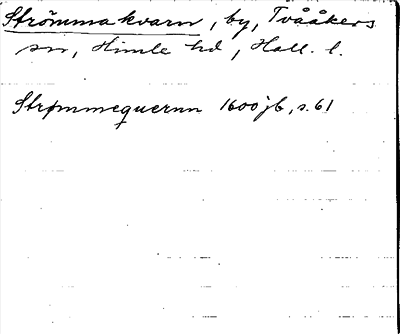 Strömmakvarn, by, Tvååkers
sn, Himle hd, Hall. l.
Strømmequernn 1600 jb, s. 61